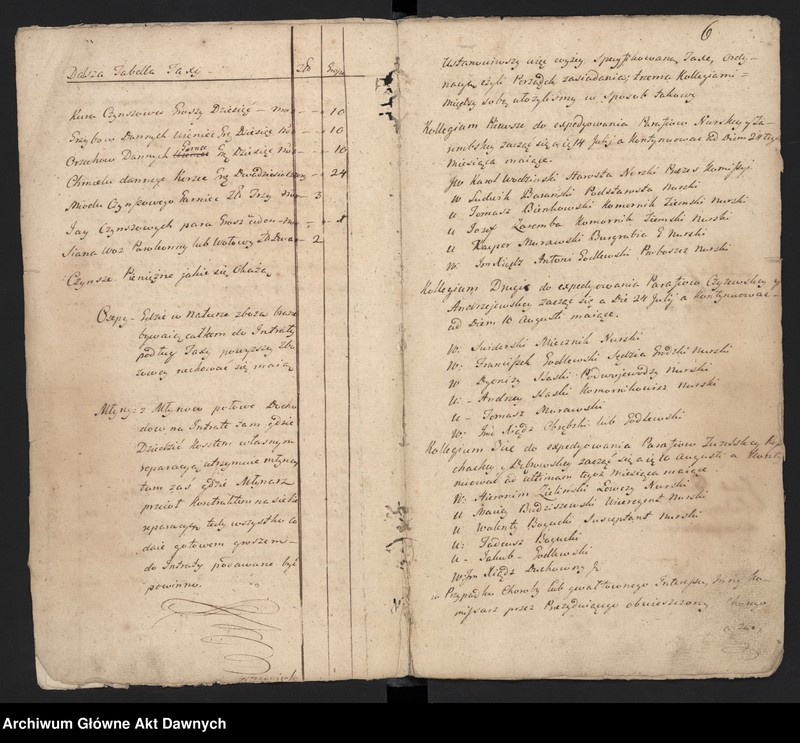 Dalsza Tabella Taxy Zł Grosze
Kura Czynszowa Groszy Dziesięć – No 10
Grzybow Dannych Wieniec Gry Dziesięć No 10
Orzechow Dannych Garniec Gry Dziesięć No 10
Chmielu dannego Korzec Gry Dwadziescia cztery 24
Miodu Czynszowego Garniec Zł: Trzy No 3
Jay Czynszowych para Grosz
Siana Woz Parokonny lub Wołowy Zł: Dwa 2
Czynsze Pieniężne jakie się Okażą
Osepy – Gdzie w Naturze zboża
bywaią całkem do Intraty
podług Taxy powyższey Zbo-
żowey rachować się maią
Młyny: z Młynow połowe Docho
dow na Intratę tam, gdzie
Dziedzic kosztem własnym
reparacyą utrzymuie młyna
tam zaś gdzie Młynarz
przez Kontraktem na siebie
reparacyą, tedy wszystko co
daie gotowem groszem –
do Intraty podawane być
powinno.
6
Ustanowiwszy więc wyżey Specyfikowaną Taxę, Ordy-
nacyą czyli Porządek zasiadania trzema Kollegiami =
między sobą ułożylismy w Sposob takowy
Kollegium Pierwsze do expedyowania Parafiow Nurskey y Za-
rembskey zacząć się ią 14 Julij a Kontynuować ad Diem 24 tegoż
Miesiąca maiące.
JW Karol Wodzinski Starosta Nurski Prezes Kommissyi
W Ludwik Barański Podstarosta Nurski
U Tomasz Bienkowski Komornik Ziemski Nurski
U Jozef Zaremba Komornik Ziemski Nurski
U Kasper Murawski Burgrabia G Nurski
W: Jmć Xiądz Antoni Godlewski Proboszcz Nurski
Kollegium Drugie do expedyowania Parafiow Czyżewskey y
Andrzejewskey zacząć się a Die 24 Julij a Kontynuować –
ad Diem 10 Augusti maiące.
W: Swiderski Miecznik Nurski
W: Franciszek Godlewski Sędzia Grodzki Nurski
W Dyonizy Skaski Podwojewodzy Nurski
U: – Andrzey Skaski Komornikowicz Nurski
U – Tomasz Murawski
W: Jmć Xiądz lub Godlewski
Kollegium 3cie do expedyowania Parafiow
y Dąbrowskey zacząć się a ią 10 Augusti a Konti-
nuować ad ultimam tegoż Miesiąca maiące
W: Hieronim Zieliński Łowczy Nurski
U Maciey Budziszewski Viceregent Nurski
U Walenty Bogucki Susceptant Nurski
U: Tadeusz Bogucki
U – Jakub – Godlewski
W Jm Xiądz Duchowny
w Przypadku Choroby lub gwałtownego Interessu, inny Ko-
missarz przez Prezydującego obwieszczony